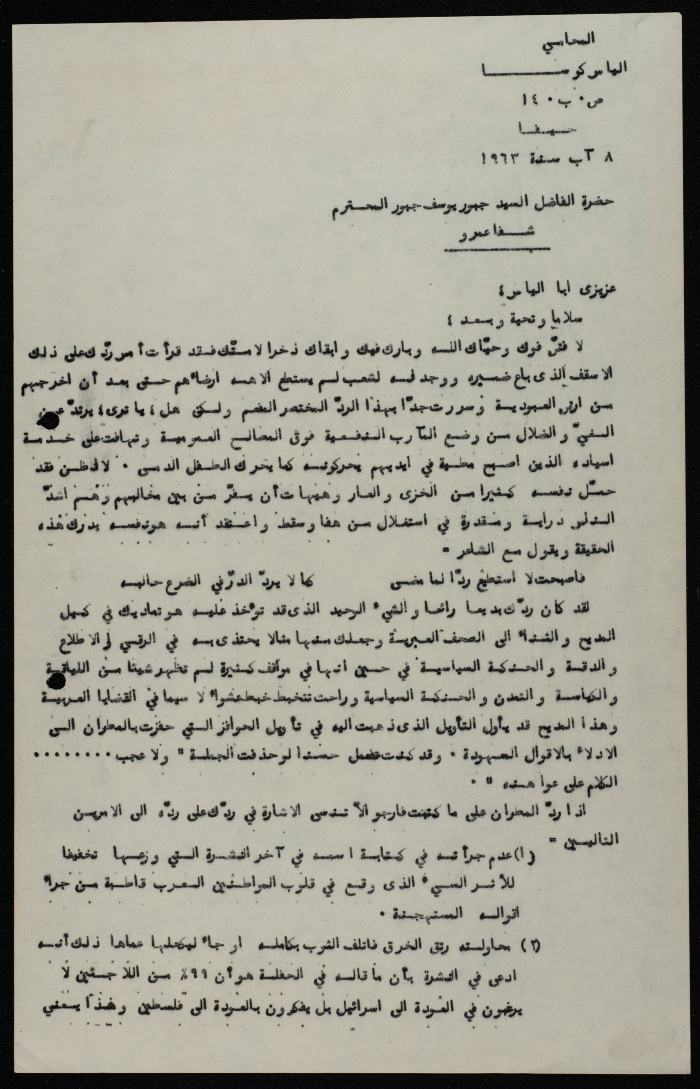 المحامي
الياس كوسـا
ص٠ب٠ ١٤٠
حيفا
٨ آب سنة ١٩٦٣
حضرة الفاضل السيد جبور يوسف جبور المحترم
شفاعمرو
عزيزى ابا الياس ،
سلاما وتحية وبعد ،
لا فضّ فوك وحيّاك الله وبارك فيك وابقاك ذخرا لامتّك فقد قرأت أمس ردّك على ذلك
الاسقف الذى باع ضميره ووجد انه لشعب لم يستطع الاهه ارضاءهم حتى بعد أن اخرجهم
من ارض العبودية وسررت جدّا بهذا الردّ المختصر المفحم ولكن هل ، يا ترى ، يرتدّ عن
الغيّ والضلال من وضع المآرب النفعية فوق المصالح العمومية وتهافت على خدمة
اسياده الذين اصبح مطية في ايديهم يحركونه كما يحرك الطفل الدمى ٠ لا اظن فقد
حمّل نفسه كثيرا من الخزى والعار وهيهات أن يفرّ من بين مخالبهم وهم اشدّ
الناس دراية ومقدرة في استغلال من هفا وسقط واعتقد أنه هو نفسه يدرك هذه
الحقيقة ويقول مع الشاعر "
فاصبحت لا استطيع ردّا لما مضى كما لا يردّ الدرّ في الضرع حالبه
لقد كان ردّك بديعا رائعا والشيء الوحيد الذى قد تؤخذ عليه هو تماديك في كيل
المديح والثناء الى الصحف العبرية وجعلك منها مثالا يحتذى به في الرقي والاطلاع
والدقة والحنكة السياسية في حين انها في مواقف كثيرة لم تظهر شيئا من اللياقة
والكياسة والتمدن والحنكة السياسية وراحت تتخبط خبط عشواء لا سيما في القضايا العربية
وهذا المديح قد يأول التأويل الذى ذهبت اليه في تأويل الحوافز التي حفزت بالمطران الى
الادلاء بالاقوال المعهودة ٠ وقد كنت تفعل حسنا لو حذفت الجملة " ولا عجب ٠٠٠٠٠٠٠٠
الكلام على عواهنه " ٠
اذا ردّ المطران على ما كتبت فارجو الا تنسى الاشارة في ردّك على ردّه الى الامرين
التاليين =
(١) عدم جرأته في كتابة اسمه في آخر النشرة التي وزعها تخفيفا
للأثر السيء الذى وقع في قلوب المواطنين العرب قاطبة من جراء
اقواله المستهجنة ٠
(٢) محاولته رتق الخرق فاتلف الثوب بكامله او جاء ليكحلها عماها ذلك أنه
ادعى في النشرة بأن ما قاله في الحفلة هو أن ٩٩٪ من اللاجئين لا
يرغبون في العودة الى اسرائيل بل يفكرون بالعودة الى فلسطين وهذا يعني